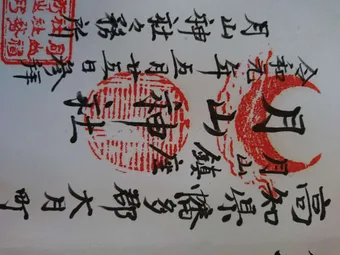 高知県幡多郡大月町
月山鎮座
月山神社
令和元年五月廿五日
月山神社々務所
参拝